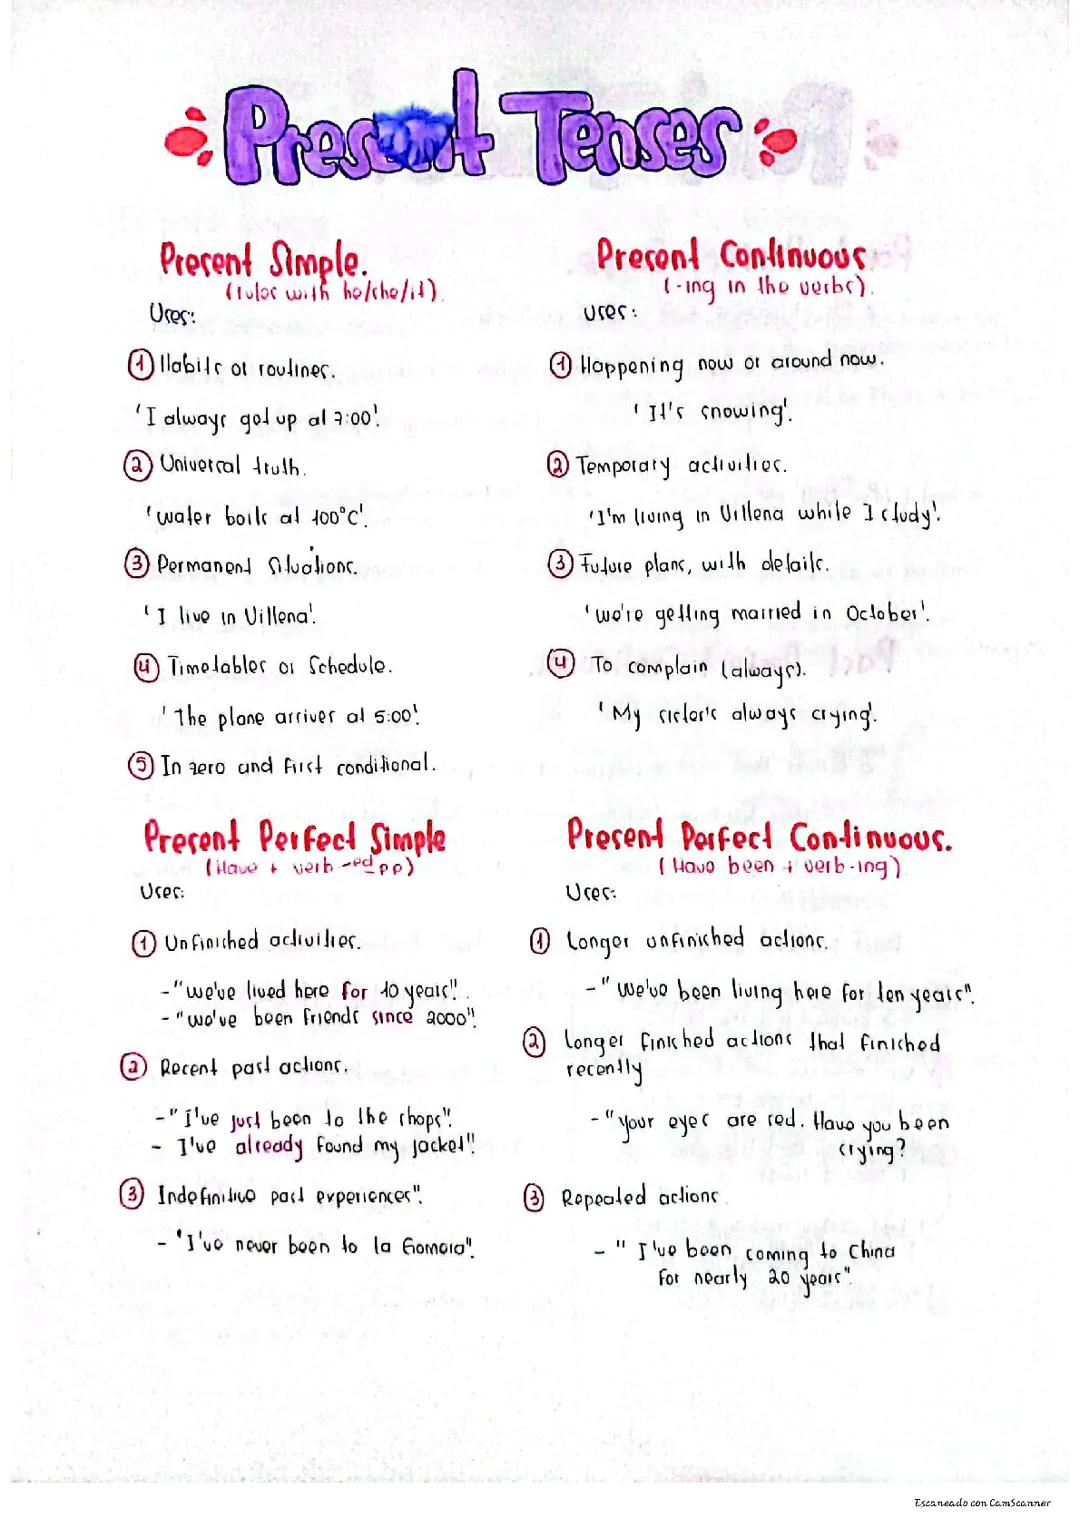 Present Tenses
Present Simple.
(rules with he/she/it).
Uses:
① Habits or routines.
'I always get up at 7:00'.
② Universal truth.
'water boils at 100°C'.
③ Permanent situations.
'I live in Villena'.
④ Timetables or Schedule.
'The plane arrives at 5:00'.
⑤ In zero and first conditional.
Present Continuous
(-ing in the verbs).
uses:
① Happening now or around now.
'It's snowing'.
② Temporary activities.
'I'm living in Villena while I study'.
③ Future plans, with details.
'we're getting married in October'.
④ To complain (always).
'My sister's always crying'.
Present Perfect Simple
(Have + verb -ed pp)
Uses:
① Unfinished activities.
-"we've lived here for 10 years".
-"we've been friends since 2000"
② Recent past actions.
-"I've just been to the shops".
- I've already found my jacket"
③ Indefinitive past experiences".
- "I've never been to la Gomera".
Present Perfect Continuous.
(Have been + verb-ing)
Uses:
① Longer unfinished actions.
-" we've been living here for ten years".
② Longer finished actions that finished
recently
-"your eyes are red. Have you been
crying?
③ Repeated actions.
- " I've been coming to China
for nearly 20 years".
Escaneado con CamScanner